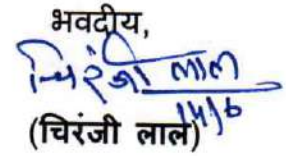 भवदीय,
चिरंजी लाल
(चिरंजी लाल)